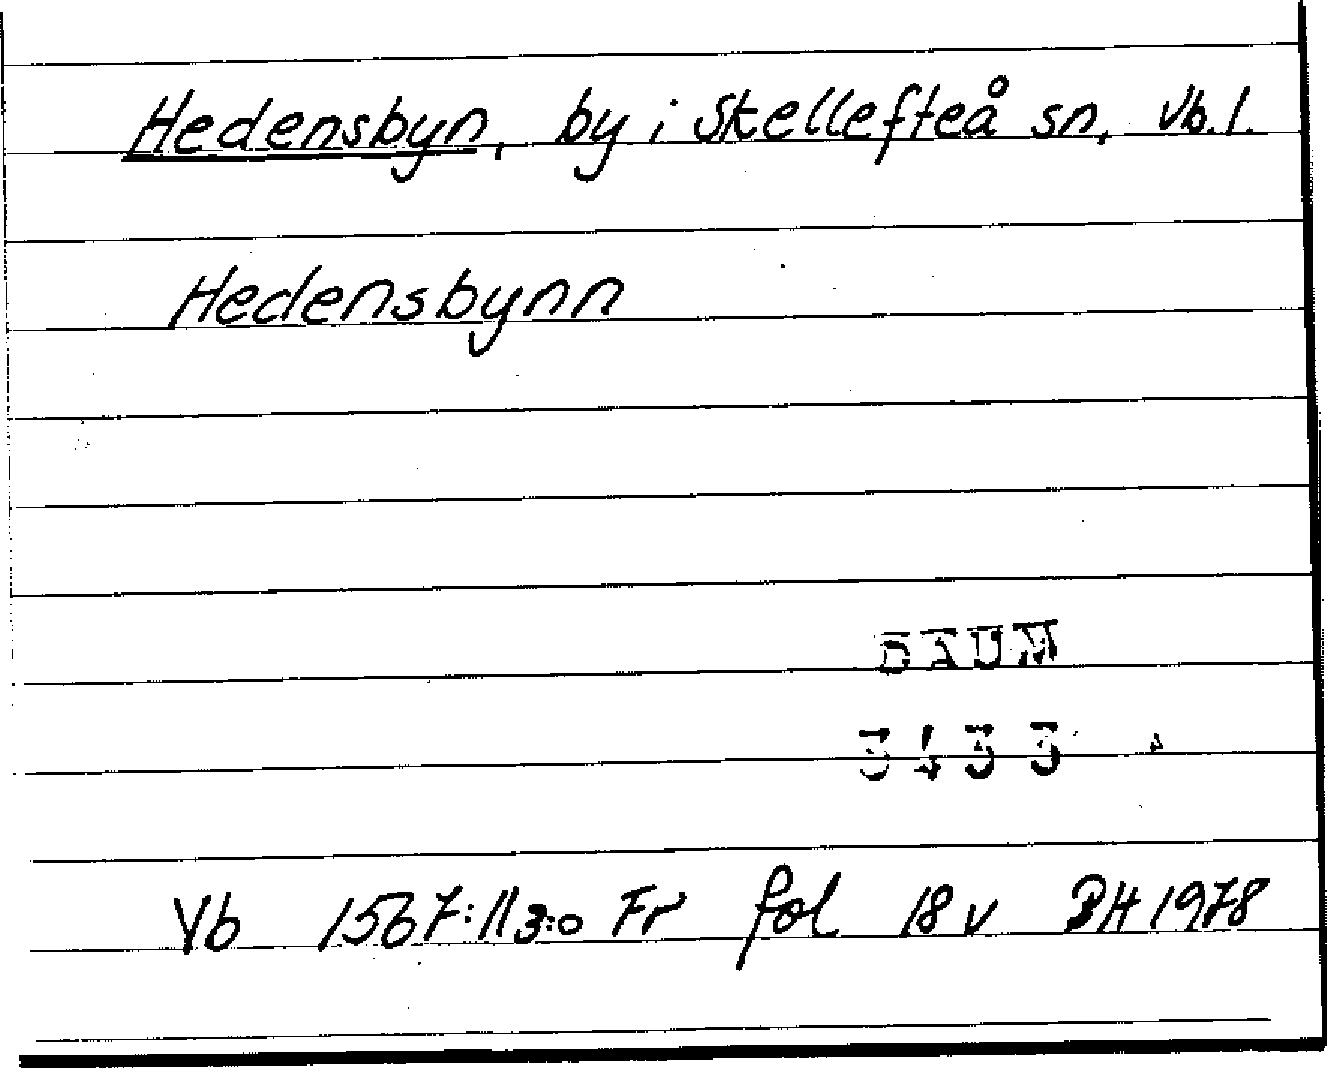 Hedensbyn, by i Skellefteå sn, Vb. l.
Hedensbynn
DAUM
3433
Vb 1567:11 3:o Fr fol 18 v BH 1978